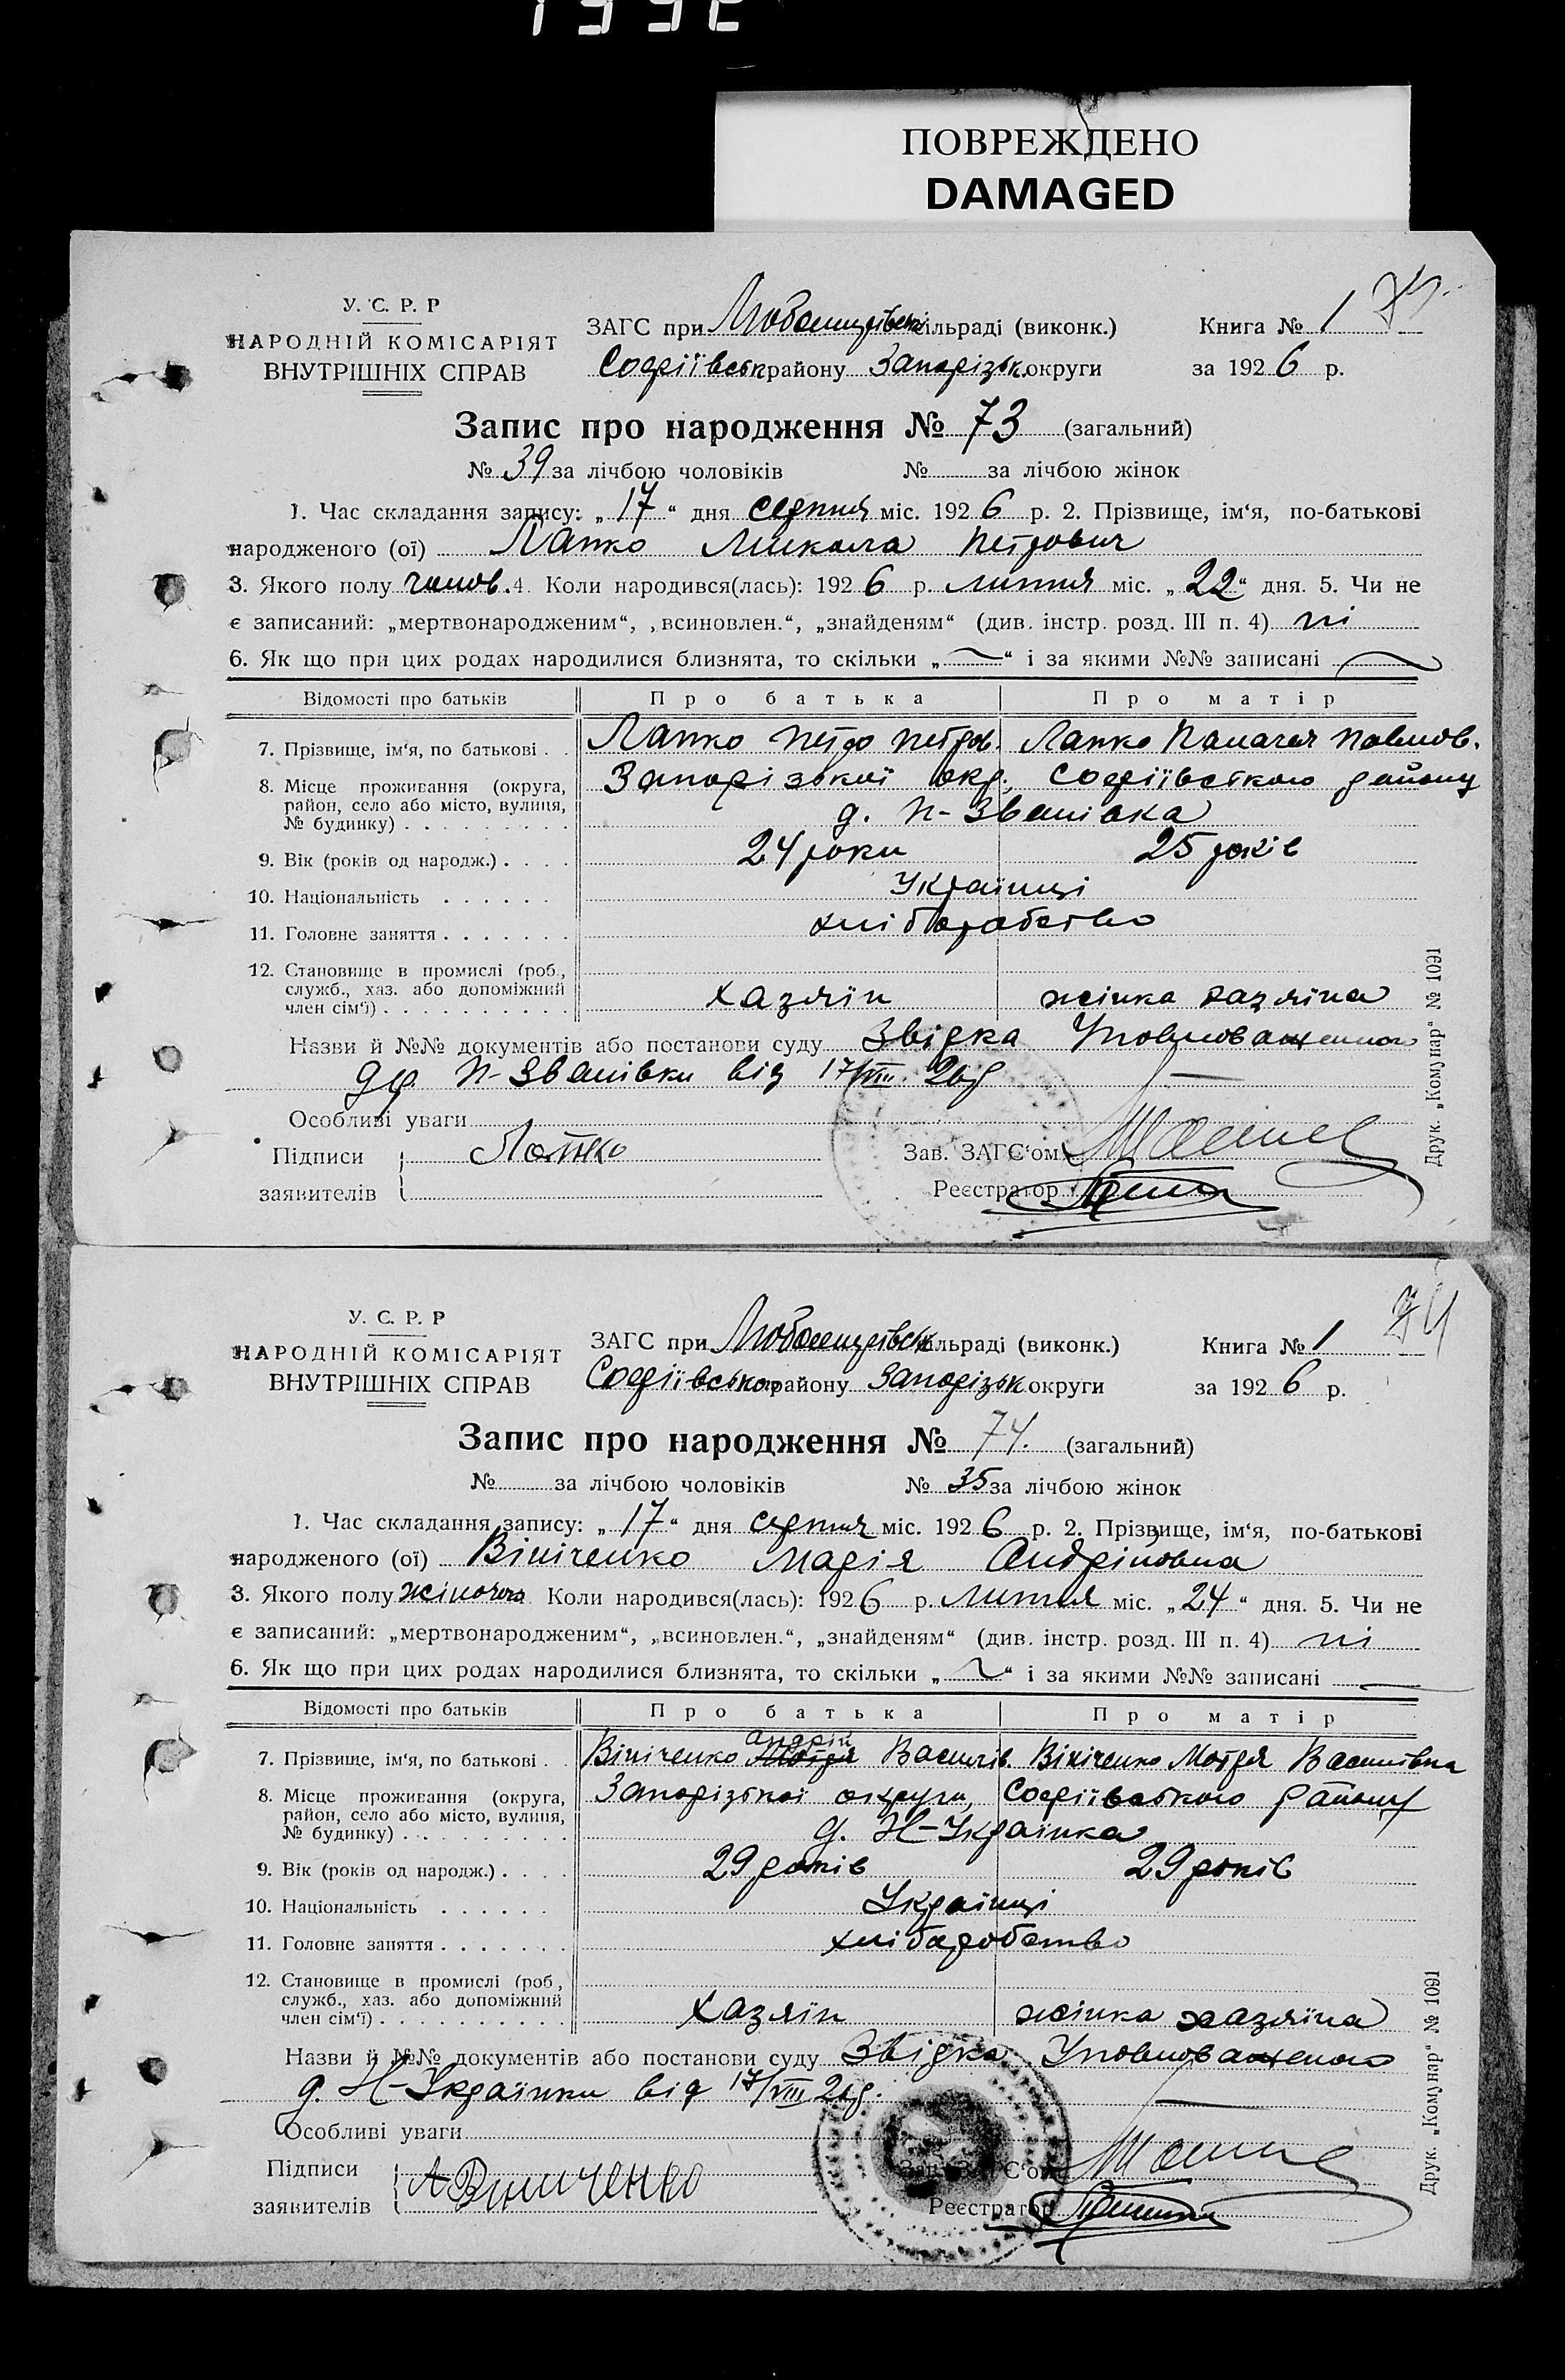 ПОВРЕЖДЕНО
DAMAGED
У. С. Р. Р
НАРОДНІЙ КОМІСАРІЯТ
ВНУТРІШНІХ СПРАВ
ЗАГС при сільраді (виконк.)
Софіївськ району Запорізьк. округи
Книга № 1
за 1926 р.
Запис про народження № 73 (загальний)
№ 39 за лічбою чоловіків № за лічбою жінок
1. Час складання запису: „17“ дня серпня міс. 1926 р. 2. Прізвище, ім‘я, по-батькові
народженого (ої) Лапко Микола Петрович
3. Якого полу чолов. 4. Коли народився(лась): 1926 р. липня міс. „22“ дня. 5. Чи не
є записаний: „мертвонародженим“, „всиновлен.“, „знайденям“ (див. інстр. розд. III п. 4) ні
6. Як що при цих родах народилися близнята, то скільки „ “ і за якими №№ записані
Відомості про батьків Про батька Про матір
7. Прізвище, ім‘я, по батькові . . Лапко Петро Петров. Лапко Палагея Павлов.
8. Місце проживання (округа, район, село або місто, вулиця, № будинку) . . . . . . . . . Запорізької окр. Софіївського району
д. П-Званівка
9. Вік (років од народж.) . . . . 24 роки 25 років
10. Національність . . . . . . Українці
11. Головне заняття . . . . . . . хліборобство
12. Становище в промислі (роб., служб., хаз. або допоміжний член сім‘ї) . . . . . . . . . . хазяїн жінка хазяїна
Назви й №№ документів або постанови суду Звідка Уповноваженного
П-Званівки від 17/VIII 26 р
Особливі уваги
Підписи заявителів Лапко
Зав. ЗАГС‘ом
Реєстратор
Друк. „Комунар“ № 1091
У. С. Р. Р
НАРОДНІЙ КОМІСАРІЯТ
ВНУТРІШНІХ СПРАВ
ЗАГС при сільраді (виконк.)
Софіївського району Запорізьк округи
Книга № 1
74
за 1926 р.
Запис про народження № 74. (загальний)
№ за лічбою чоловіків № 35 за лічбою жінок
1. Час складання запису: „17“ дня серпня міс. 1926 р. 2. Прізвище, ім‘я, по-батькові
народженого (ої) Вініченко Марія Андріївна
3. Якого полу жіночого Коли народився(лась): 1926 р. липня міс. „24“ дня. 5. Чи не
є записаний: „мертвонародженим“, „всиновлен.“, „знайденям“ (див. інстр. розд. III п. 4) ні
6. Як що при цих родах народилися близнята, то скільки „ “ і за якими №№ записані
Відомості про батьків Про батька Про матір
андрій
7. Прізвище, ім‘я, по батькові . . Вініченко Мотря Василів. Вініченко Мотря Василівна
8. Місце проживання (округа, район, село або місто, вулиця, № будинку) . . . . . . . . . Запорізької округи, Софіївського району
д. Н-Українка
9. Вік (років од народж.) . . . . 29 років 29 років
10. Національність . . . . . . Українці
11. Головне заняття . . . . . . . хліборобство
12. Становище в промислі (роб., служб., хаз. або допоміжний член сім‘ї) . . . . . . . . . . хазяїн жінка хазяїна
Назви й №№ документів або постанови суду Звідка Уповноваженого
д. Н-Українки від 17/VIII 26 р.
Особливі уваги
Підписи заявителів А Виниченко
Зав. ЗАГС‘ом
Реєстратор
Друк. „Комунар“ № 1091